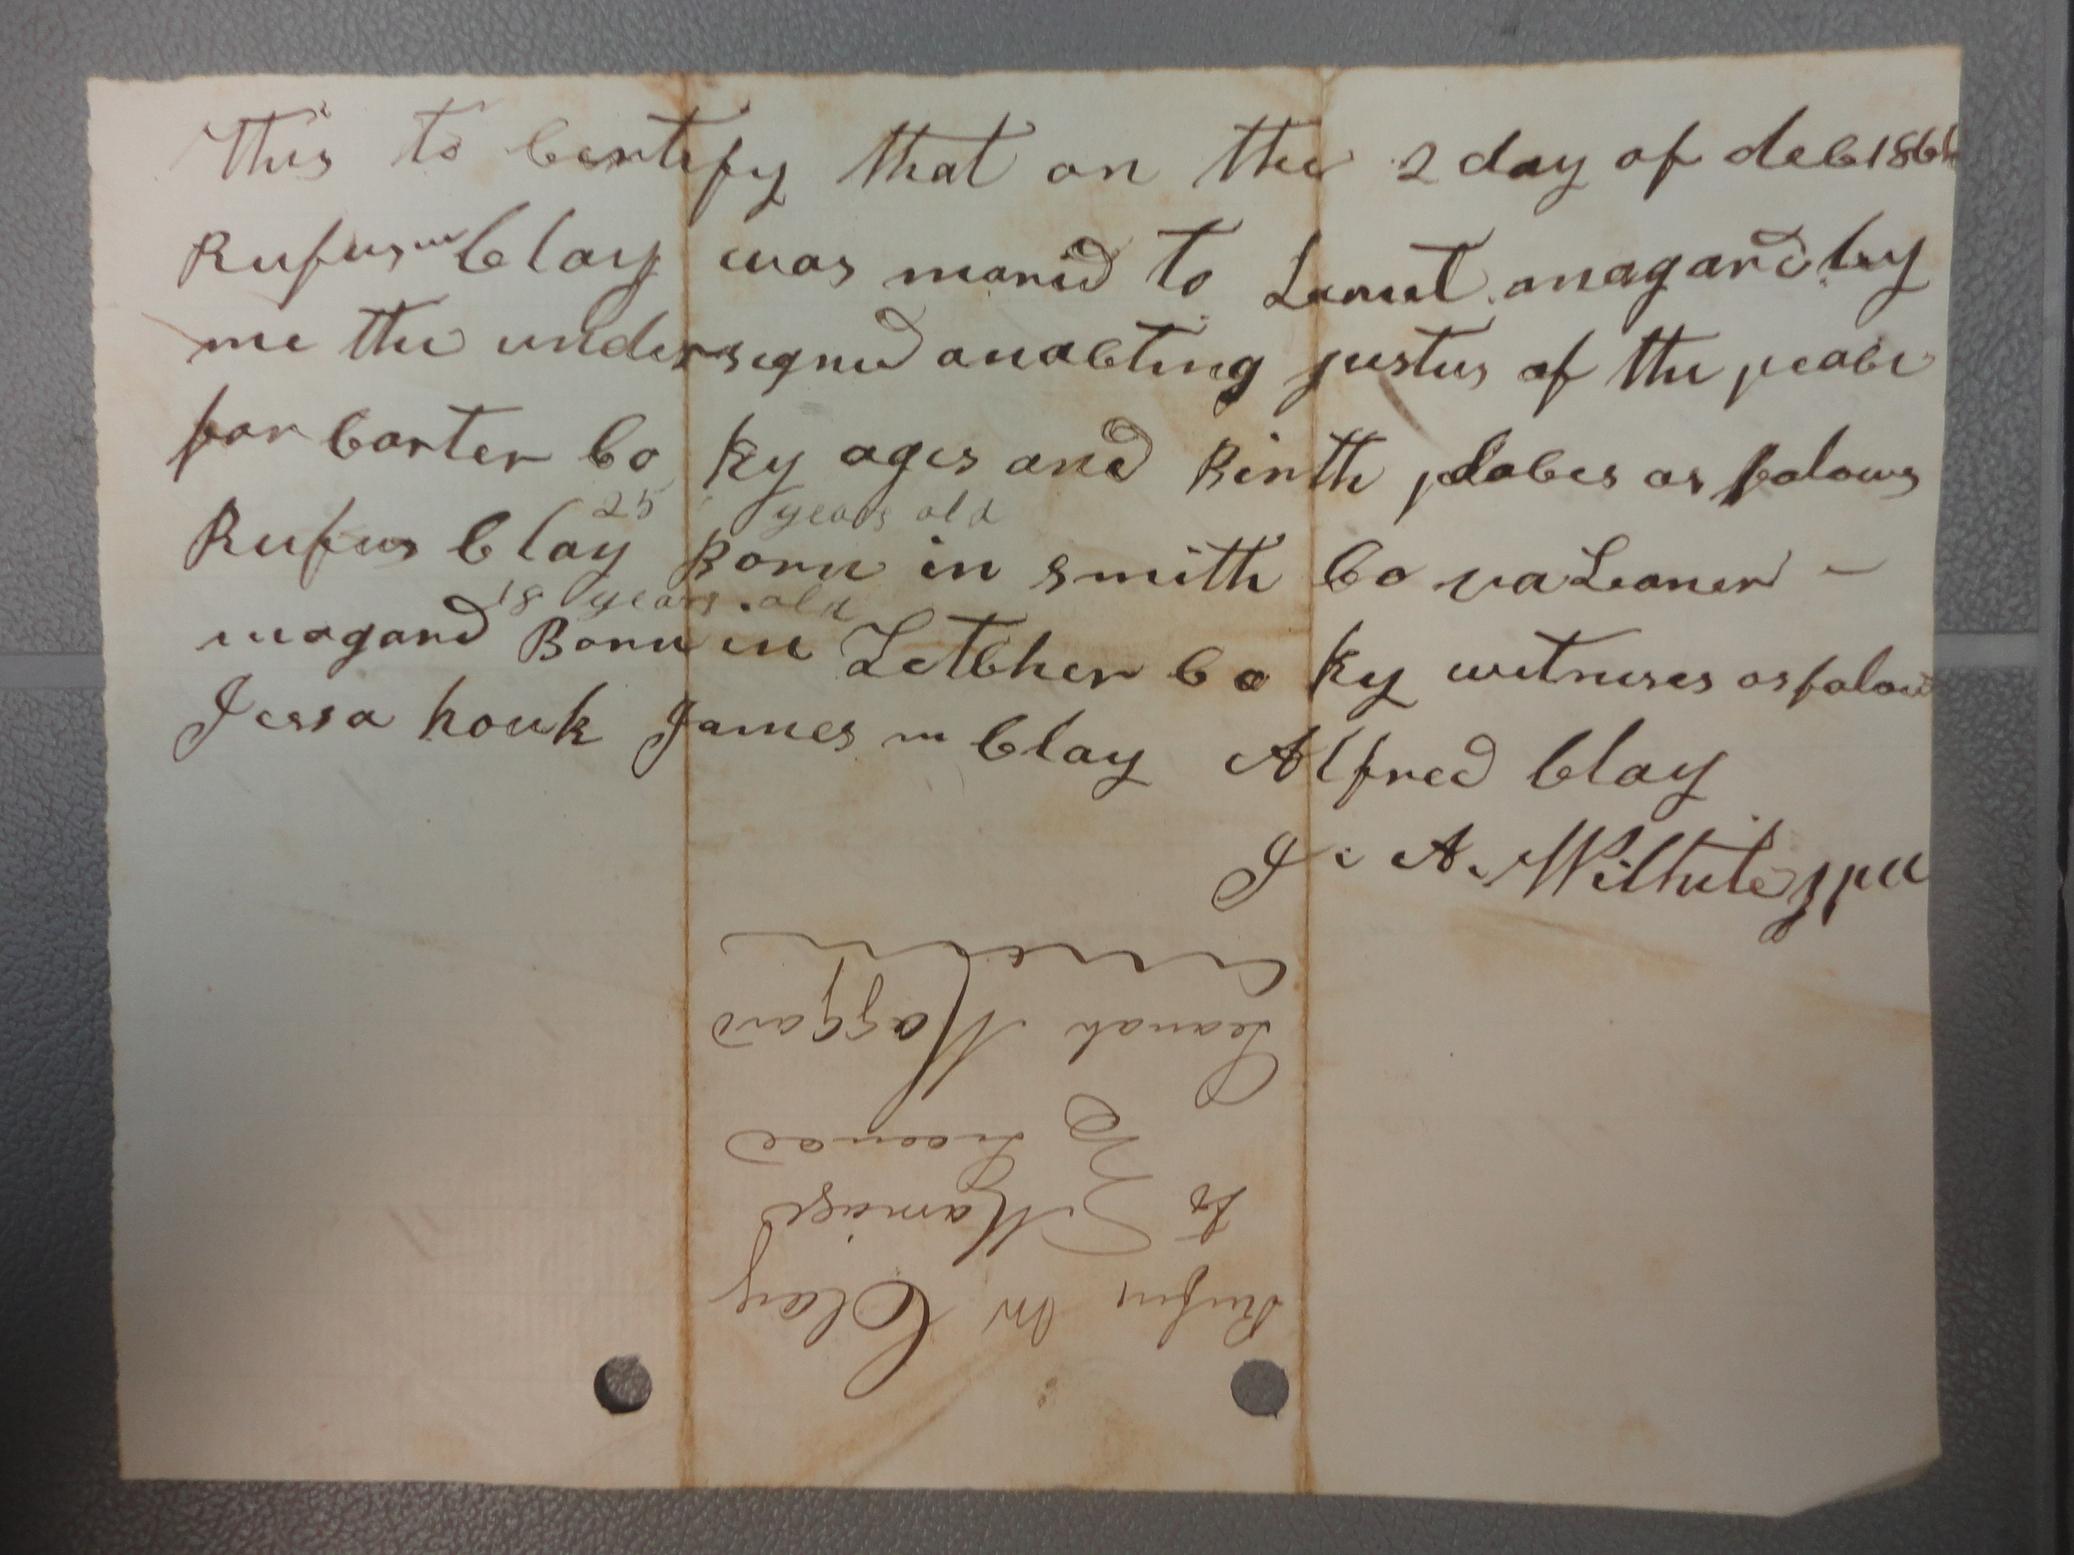 This to Certify that on the 2 day of dec 186
Rufus m Clay was marid to magard by
me the undersigned anacting justus of the peace
for Carter Co Ky ages and Birth places as folows
25 years old
Rufus Clay Born in smith Co va Leaner -
18 years old
magard Born in Letcher Co Ky witneses as folows
Jessa houk James m Clay Alfred Clay
J. A. Wilhite
Rufus M Clay
to Marriage
License
Leanah Maggard